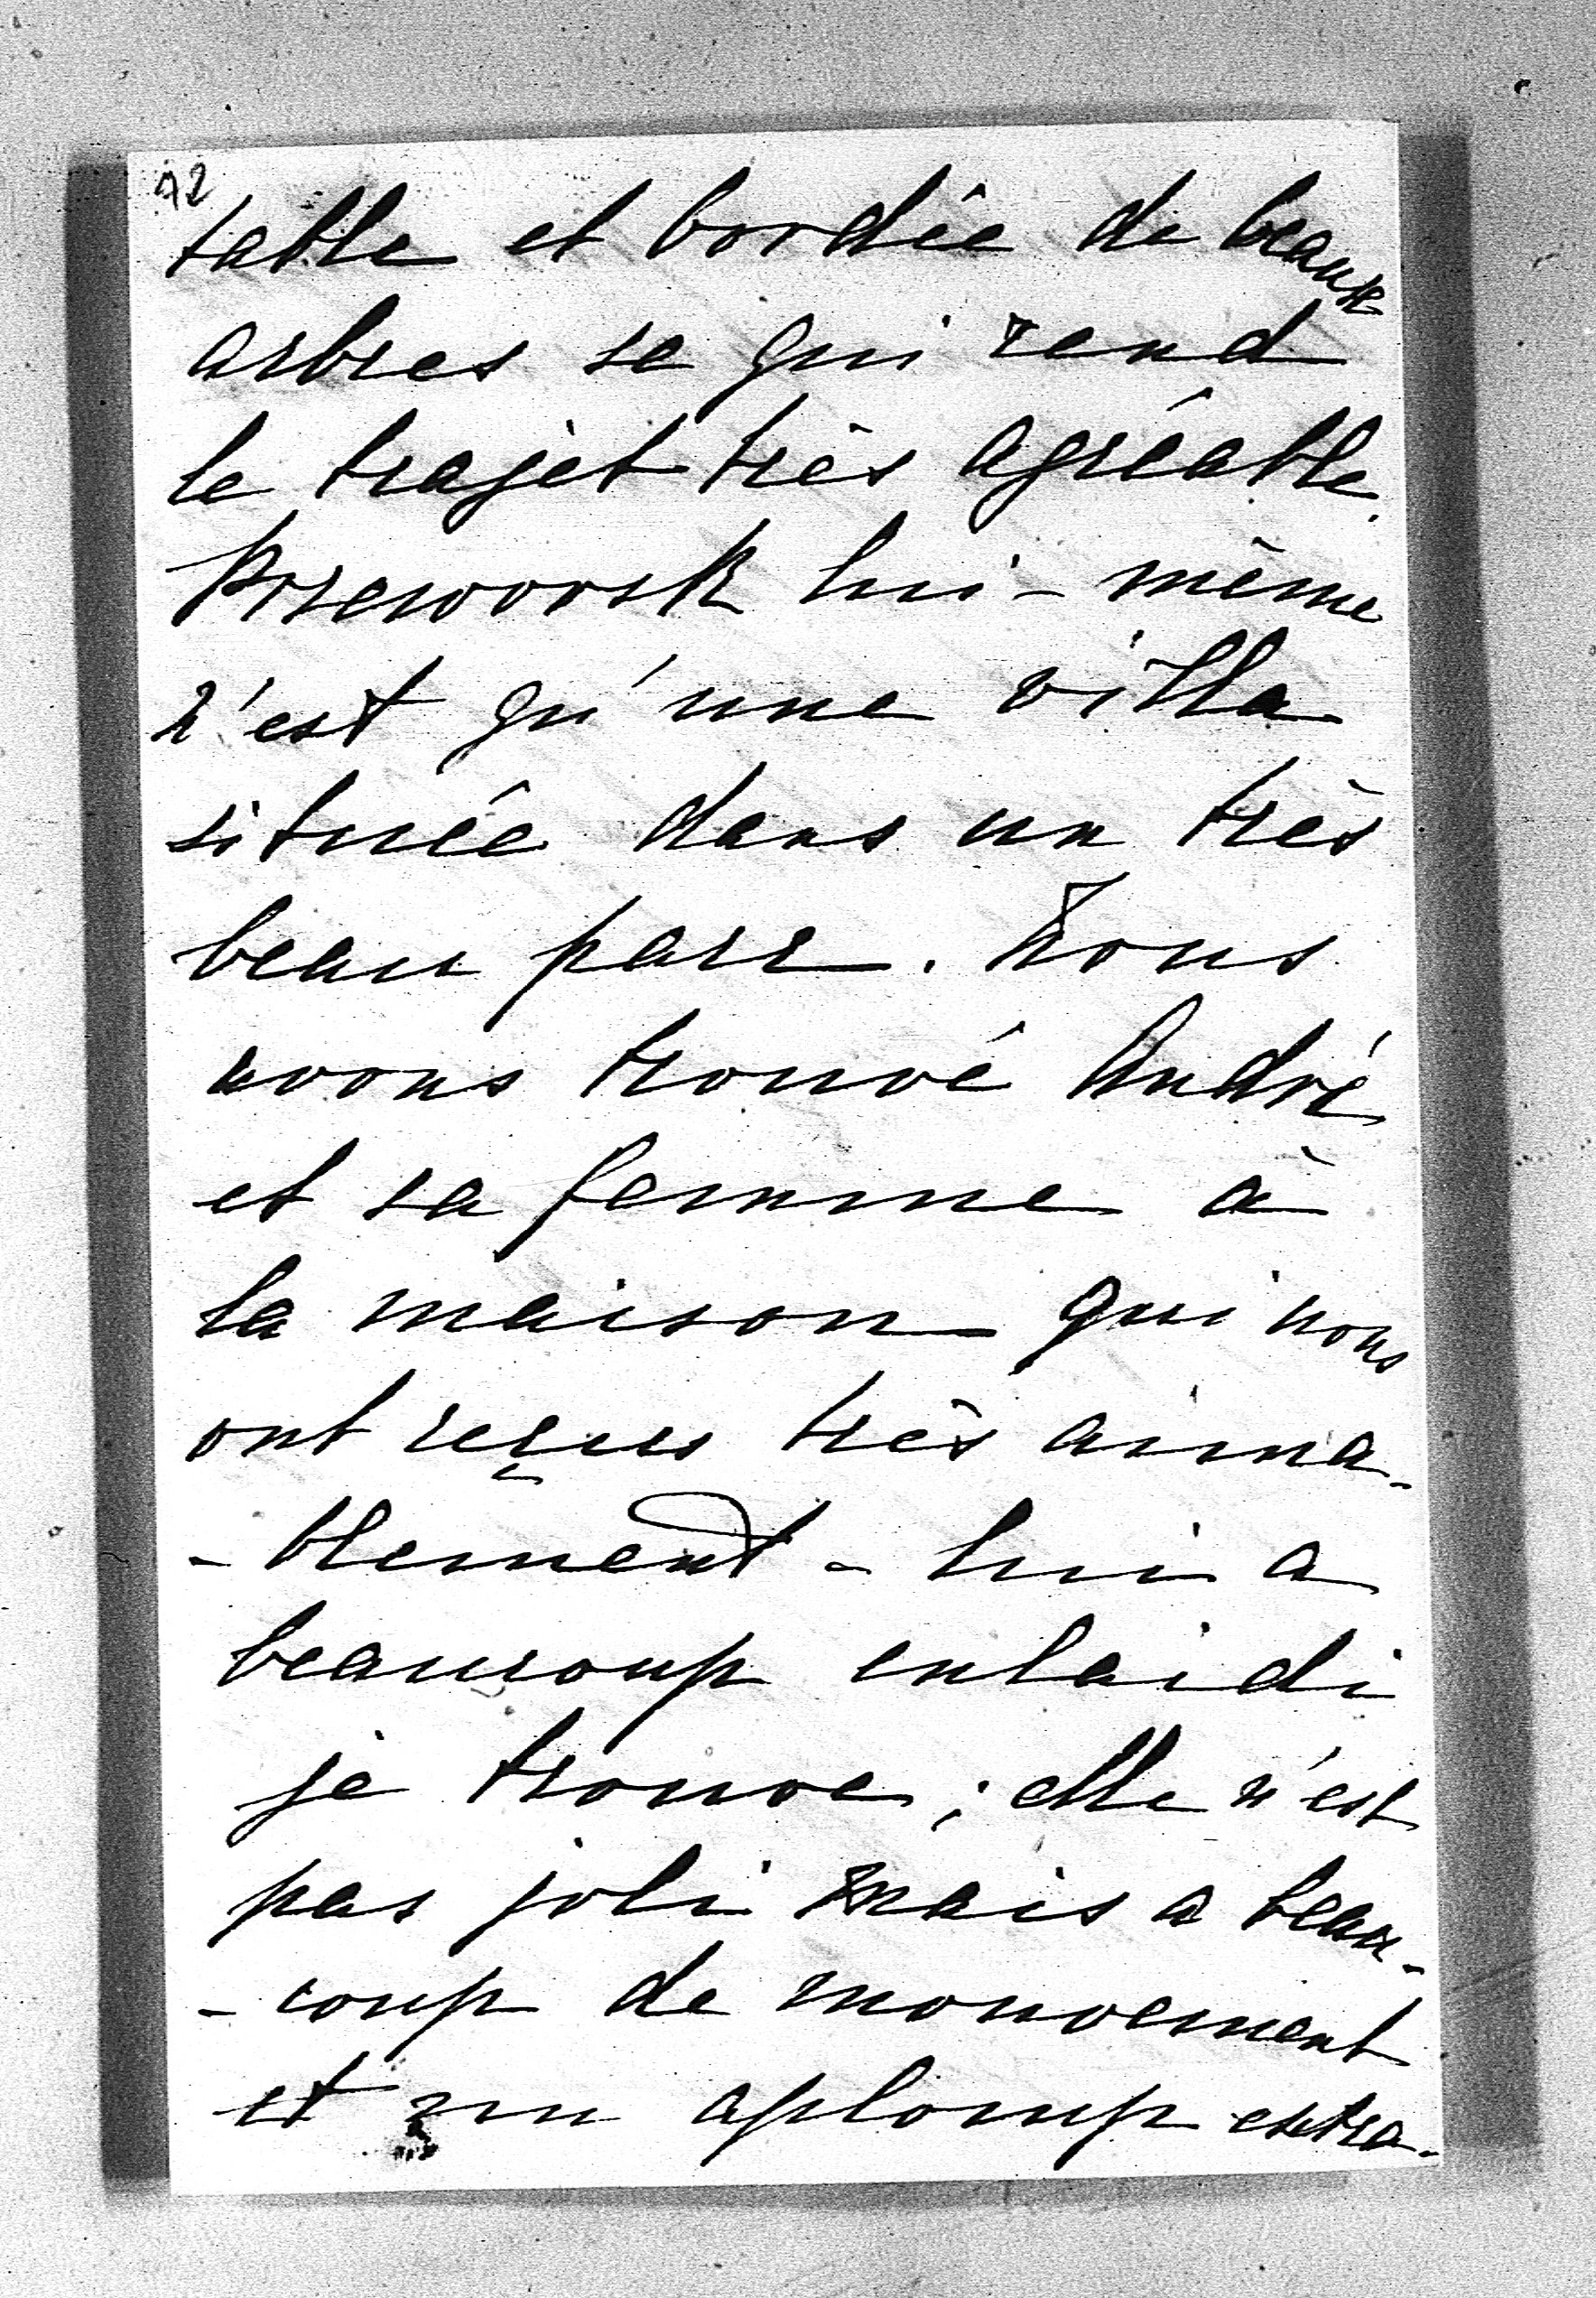 72
table et bordée de beaux
arbres se qui rend
le trajet très agréable.
Przeworsk lui-même
n'est qu'une villa
située dans un très
beau parc. Nous
avons trouvé André
et sa femme à
la maison qui nous
ont reçus très aima-
-blement - lui a
beaucoup enlaidi
je trouve; elle n'est
pas joli mais a beau-
-coup de mouvement
et un aploup extra-